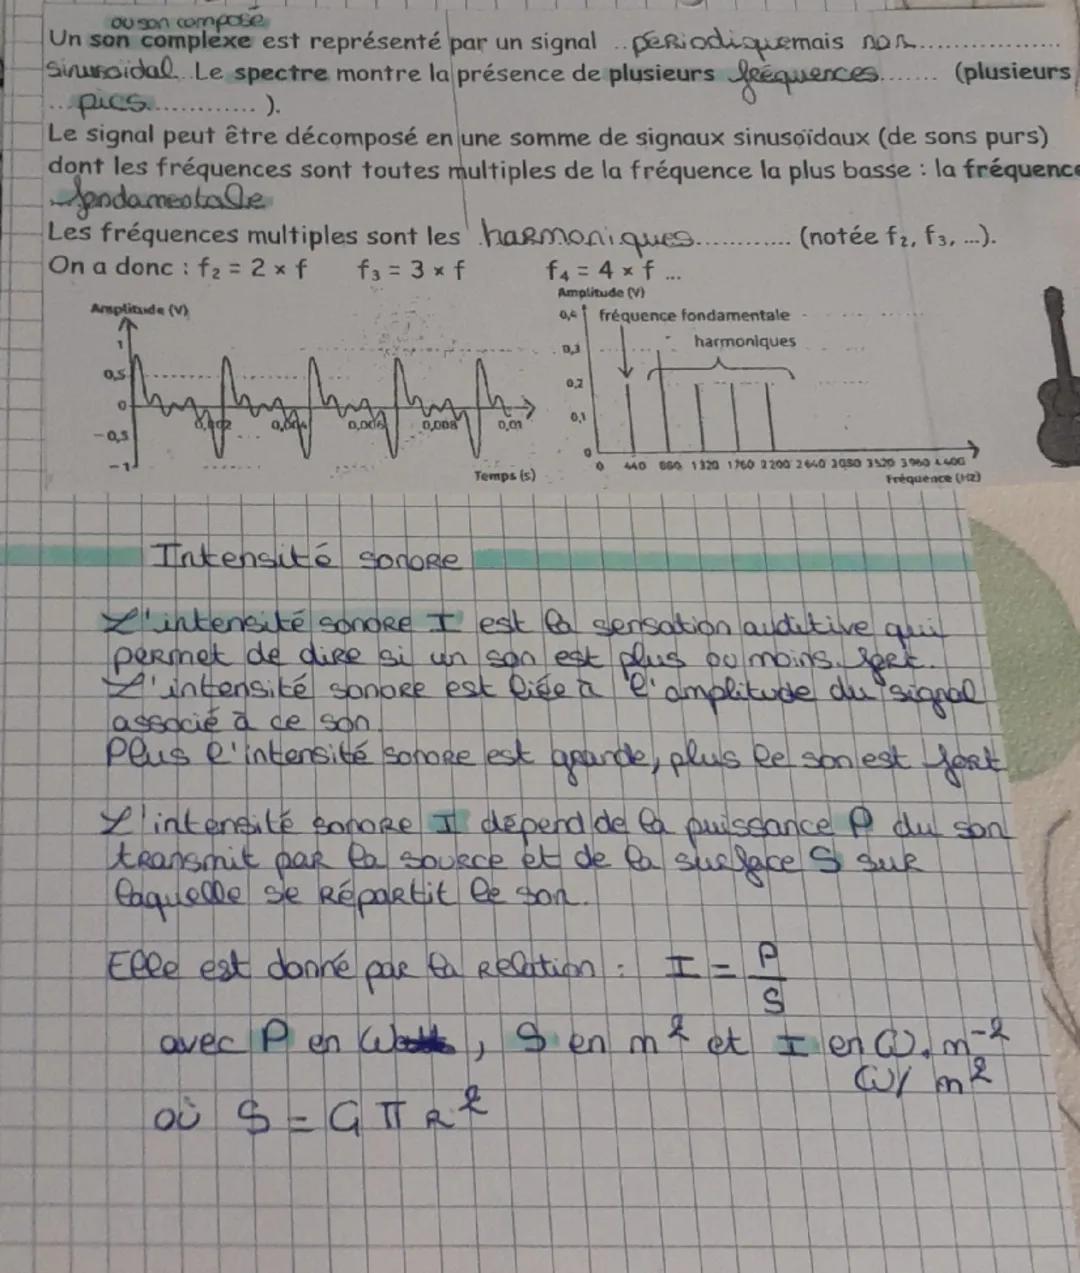 ou son composé
Un son complexe est représenté par un signal .. périodiquemais non..................
Sinusoidal.. Le spectre montre la présence de plusieurs fréquences....... (plusieurs
...pics.............. ).
Le signal peut être décomposé en une somme de signaux sinusoïdaux (de sons purs)
dont les fréquences sont toutes multiples de la fréquence la plus basse : la fréquence
fondamentale
Les fréquences multiples sont les harmoniques............. (notée f₂, f₃, ...).
On a donc : f₂ = 2 × f f₃ = 3 × f f₄ = 4 × f ...
Amplitude (V)
1
0,5
0
-0,5
-1
0,002 0,004 0,006 0,008 0,01
Temps (s)
Amplitude (V)
0,4 fréquence fondamentale
harmoniques
0,3
0,2
0,1
0
0 440 880 1320 1760 2200 2640 3080 3520 3960 4400
Fréquence (Hz)
Intensité sonore
L'intensité sonore I est la sensation auditive qui
permet de dire si un son est plus ou moins fort.
L'intensité sonore est liée à l'amplitude du signal
associé à ce son
Plus l'intensité sonore est grande, plus le son est fort
L'intensité sonore I dépend de la puissance P du son
transmit par la source et de la surface S sur
laquelle se répartit le son.
Elle est donné par la relation : I = P/S
avec P en Watts, S en m² et I en W.m⁻²
W/m²
où S = 4 π R²